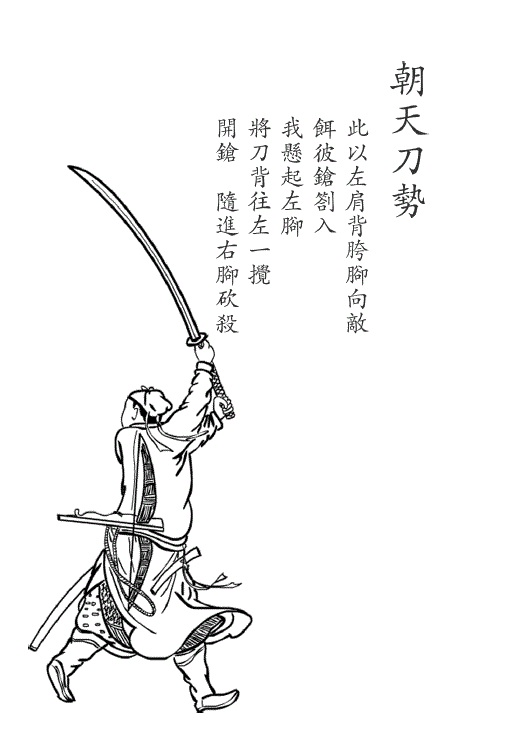 朝天刀勢
此以左肩背胯腳向敵
餌彼鎗劄入
我懸起左腳
將刀背往左一攪
開鎗　隨進右腳砍殺